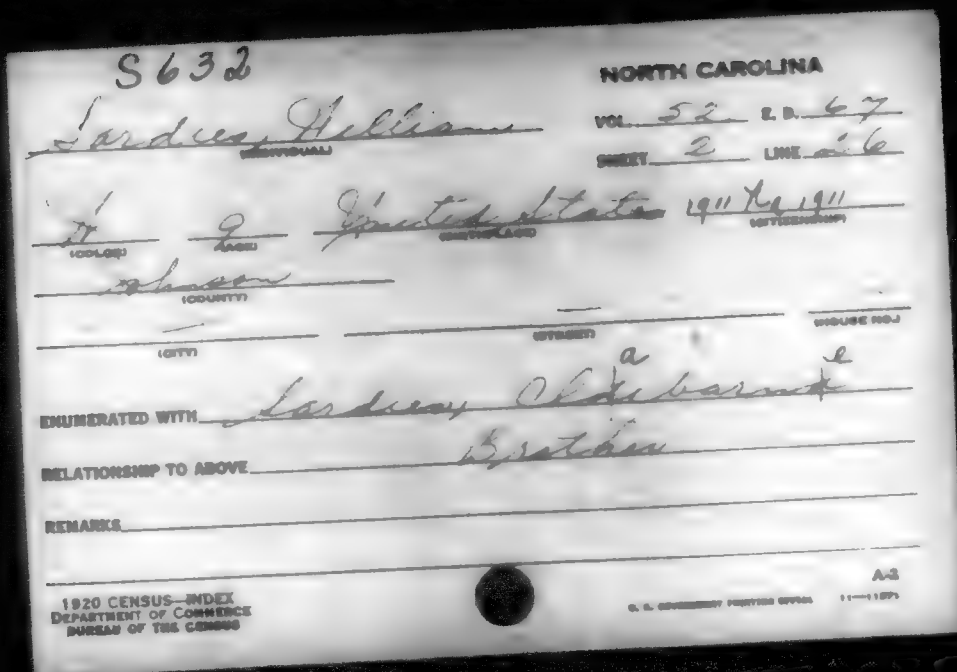 S632
NORTH CAROLINA
Sardues, William
(INDIVIDUAL)
VOL. 52 E. D. 67
SHEET 2 LINE 26
W 9 United States 1911 Na 1911
(COLOR) (AGE) (BIRTHPLACE) (CITIZENSHIP)
Johnson
(COUNTY)
(CITY) (STREET) (HOUSE NO.)
a e
ENUMERATED WITH Sardues,
RELATIONSHIP TO ABOVE Brother
REMARKS
1920 CENSUS—INDEX
DEPARTMENT OF COMMERCE
BUREAU OF THE CENSUS
A-2
U. S. GOVERNMENT PRINTING OFFICE